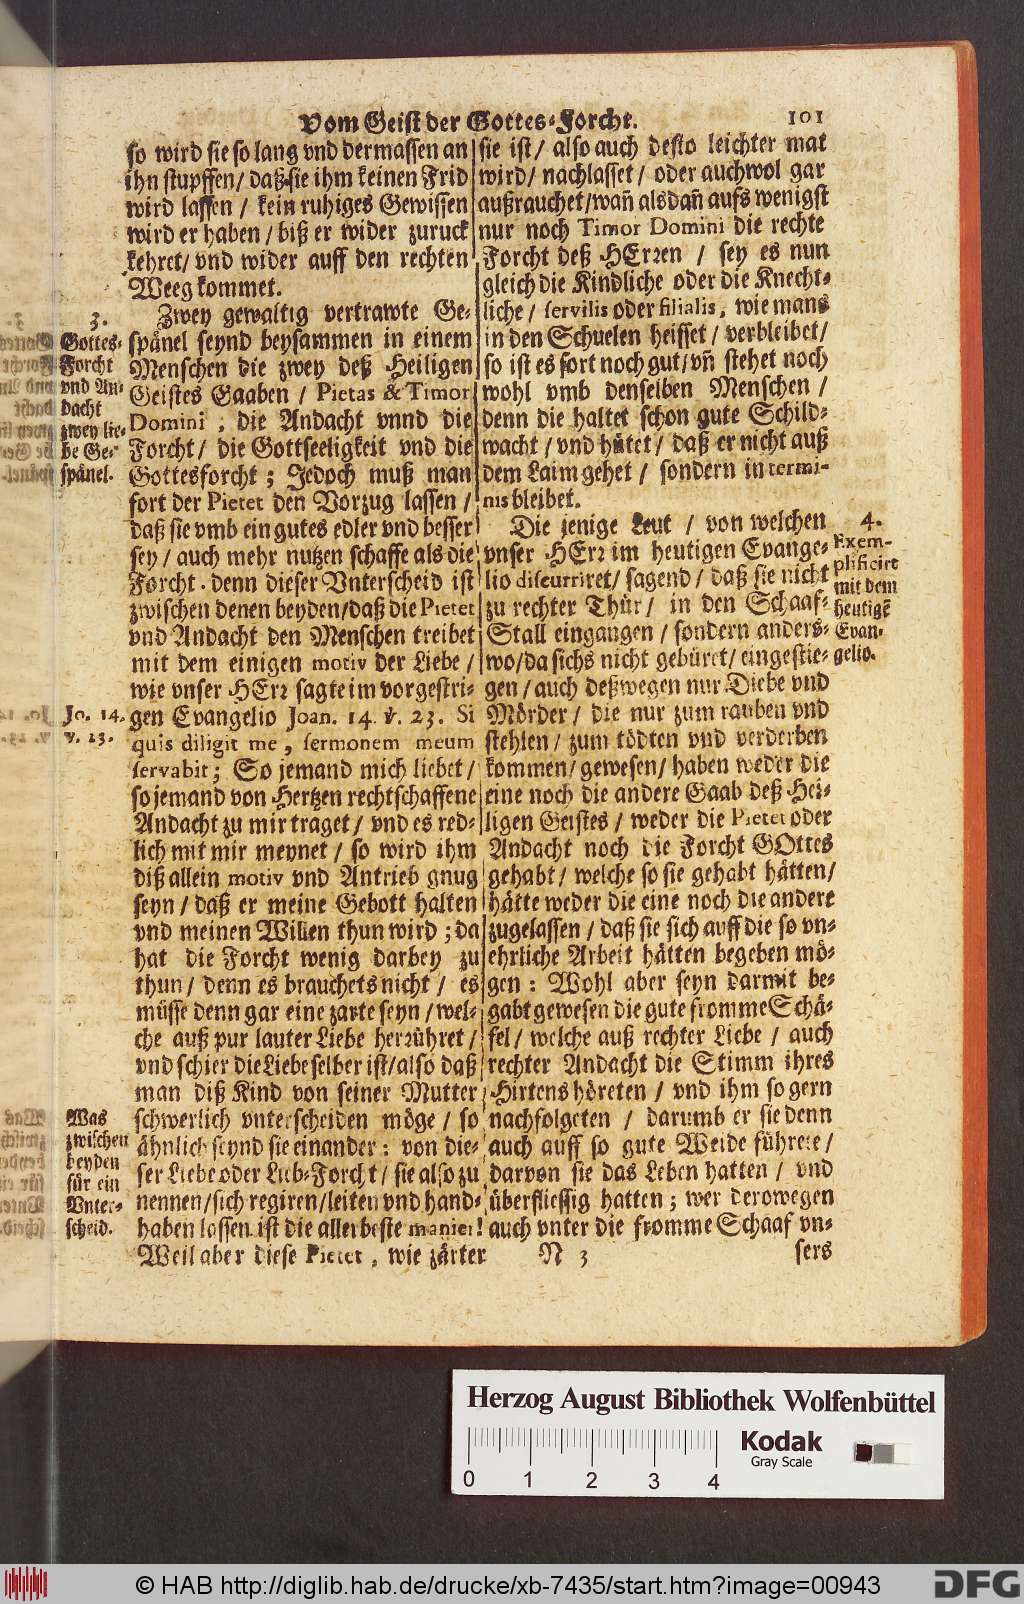 Vom Geist der Gottes-Forcht. 101
so wird sie so lang vnd dermassen an
ihn stupffen / daß sie ihm keinen Frid
wird lassen / kein ruhiges Gewissen
wird er haben / biß er wider zuruck
kehret / vnd wider auff den rechten
Weeg kommet.
Zwey gewaltig vertrawte Ge-
spänel seynd beysammen in einem
Menschen die zwey deß Heiligen
Geistes Gaaben / Pietas & Timor
Domini, die Andacht vnnd die
Forcht / die Gottseeligkeit vnd die
Gottesforcht; Jedoch muß man
fort der Pietet den Vorzug lassen /
daß sie vmb ein gutes edler vnd besser
sey / auch mehr nutzen schaffe als die
Forcht. denn dieser Vnterscheid ist
zwischen denen beyden / daß die Pietet
vnd Andacht den Menschen treibet
mit dem einigen motiv der Liebe /
wie vnser HErr sagte im vorgestri-
gen Evangelio Joan. 14. v. 23. Si
quis diligit me, sermonem meum
servabit; So jemand mich liebet /
so jemand von Hertzen rechtschaffene
Andacht zu mir traget / vnd es red-
lich mit mir meynet / so wird ihm
diß allein motiv vnd Antrieb gnug
seyn / daß er meine Gebott halten
vnd meinen Willen thun wird; da
hat die Forcht wenig darbey zu
thun / denn es brauchets nicht / es
müsse denn gar eine zarte seyn / wel-
che auß pur lauter Liebe herrühret /
vnd schier die Liebe selber ist / also daß
man diß Kind von seiner Mutter
schwerlich vnterscheiden möge / so
ähnlich seynd sie einander: von die-
ser Liebe oder Lieb-Forcht / sie also zu
nennen / sich regiren / leiten vnd hand-
haben lassen ist die allerbeste manier!
Weil aber diese Pietet, wie zärter
3.
Gottes-
Forcht
vnd An-
dacht
zwey lie-
be Ge-
spänel.
Jo. 14.
v. 23.
Was
zwischen
beyden
für ein
Vnter-
scheid.
sie ist / also auch desto leichter mat
wird / nachlasset / oder auch wol gar
außrauchet / wañ alsdañ aufs wenigst
nur noch Timor Domini die rechte
Forcht deß HErren / sey es nun
gleich die Kindliche oder die Knecht-
liche / servilis oder filialis, wie mans
in den Schuelen heisset / verbleibet /
so ist es fort noch gut / vñ stehet noch
wohl vmb denselben Menschen /
denn die haltet schon gute Schild-
wacht / vnd hütet / daß er nicht auß
dem Laim gehet / sondern in termi-
nis bleibet.
Die jenige Leut / von welchen
vnser HErr im heutigen Evange-
lio discurriret / sagend / daß sie nicht
zu rechter Thür / in den Schaaf-
Stall eingangen / sondern anders-
wo / da sichs nicht gebüret / eingestie-
gen / auch deßwegen nur Diebe vnd
Mörder / die nur zum rauben vnd
stehlen / zum tödten vnd verderben
kommen / gewesen / haben weder die
eine noch die andere Gaab deß Hei-
ligen Geistes / weder die Pietet oder
Andacht noch die Forcht GOttes
gehabt / welche so sie gehabt hätten /
hätte weder die eine noch die andere
zugelassen / daß sie sich auff die so vn-
ehrliche Arbeit hätten begeben mö-
gen: Wohl aber seyn darmit be-
gabt gewesen die gute fromme Schä-
fel / welche auß rechter Liebe / auch
rechter Andacht die Stimm ihres
Hirtens höreten / vnd ihm so gern
nachfolgeten / darumb er sie denn
auch auff so gute Weide führete /
darvon sie das Leben hatten / vnd
überfliessig hatten; wer derowegen
auch vnter die fromme Schaaf vn-
N 3 sers
4.
Exem-
plificirt
mit dem
heutigē
Evan-
gelio.
Herzog August Bibliothek Wolfenbüttel
Kodak
Gray Scale
0 1 2 3 4
© HAB http://diglib.hab.de/drucke/xb-7435/start.htm?image=00943
DFG